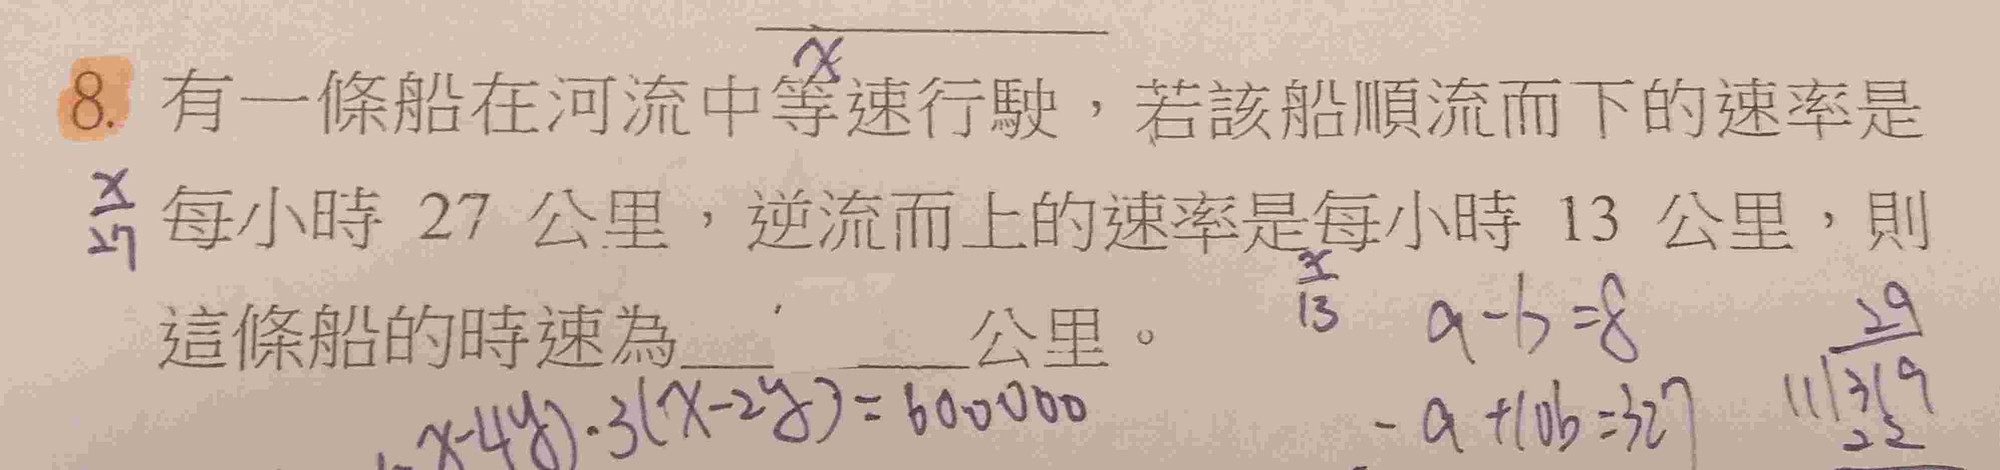 x
8. 有一條船在河流中等速行駛，若該船順流而下的速率是
x/27
每小時 27 公里，逆流而上的速率是每小時 13 公里，則
x/13
這條船的時速為______公里。
a-b=8
29
x-4y)·3(x-2y)=600000
-a+10b=327
11)319
22